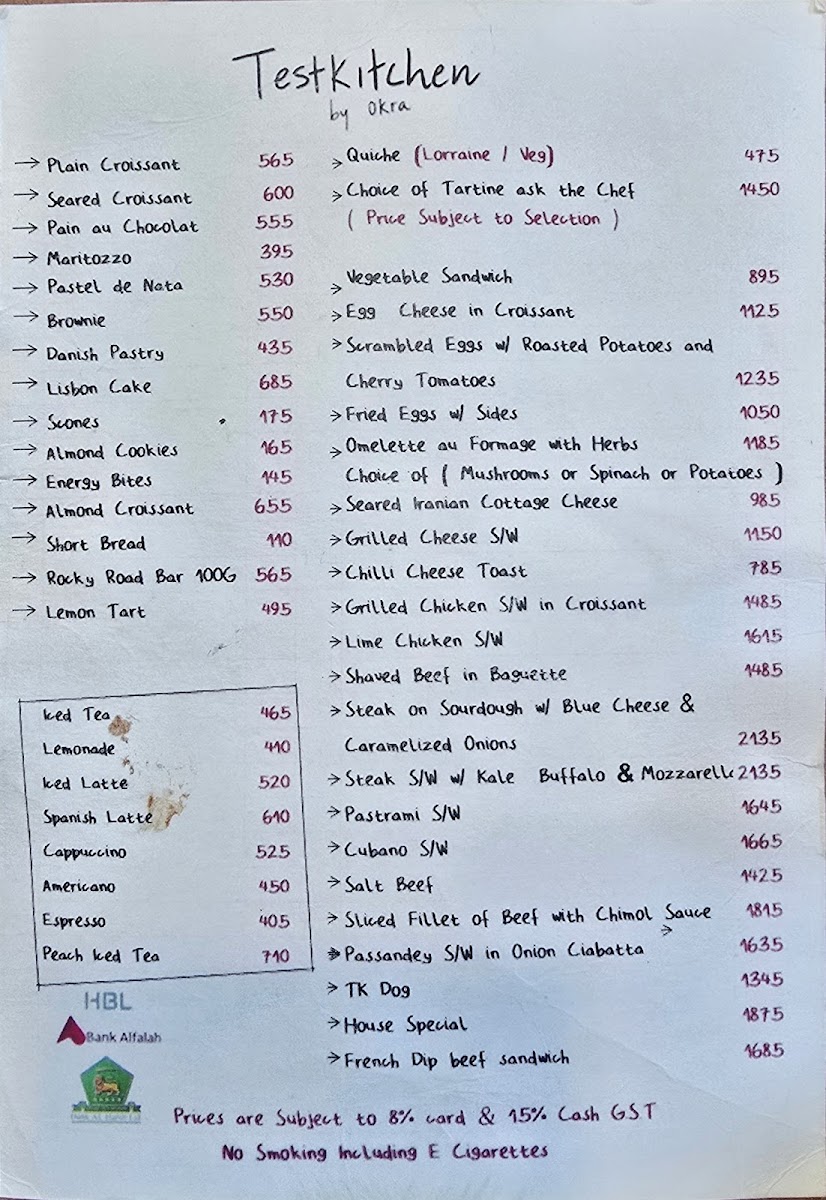 TestKitchen
by Okra
→ Plain Croissant 565
→ Seared Croissant 600
→ Pain au Chocolat 555
→ Maritozzo 395
→ Pastel de Nata 530
→ Brownie 550
→ Danish Pastry 435
→ Lisbon Cake 685
→ Scones 175
→ Almond Cookies 165
→ Energy Bites 145
→ Almond Croissant 655
→ Short Bread 110
→ Rocky Road Bar 100G 565
→ Lemon Tart 495
Iced Tea 465
Lemonade 410
Iced Latte 520
Spanish Latte 610
Cappuccino 525
Americano 450
Espresso 405
Peach Iced Tea 710
HBL
Bank Alfalah
→ Quiche (Lorraine / Veg) 475
→ Choice of Tartine ask the Chef 1450
( Price Subject to Selection )
→ Vegetable Sandwich 895
→ Egg Cheese in Croissant 1125
→ Scrambled Eggs w/ Roasted Potatoes and
Cherry Tomatoes 1235
→ Fried Eggs w/ Sides 1050
→ Omelette au Formage with Herbs 1185
Choice of ( Mushrooms or Spinach or Potatoes )
→ Seared Iranian Cottage Cheese 985
→ Grilled Cheese S/W 1150
→ Chilli Cheese Toast 785
→ Grilled Chicken S/W in Croissant 1485
→ Lime Chicken S/W 1615
→ Shaved Beef in Baguette 1485
→ Steak on Sourdough w/ Blue Cheese &
Caramelized Onions 2135
→ Steak S/W w/ Kale Buffalo & Mozzarella 2135
→ Pastrami S/W 1645
→ Cubano S/W 1665
→ Salt Beef 1425
→ Sliced Fillet of Beef with Chimol Sauce 1815
→ Passandey S/W in Onion Ciabatta 1635
→ TK Dog 1345
→ House Special 1875
→ French Dip beef sandwich 1685
Prices are Subject to 8% card & 15% Cash GST
No Smoking Including E Cigarettes